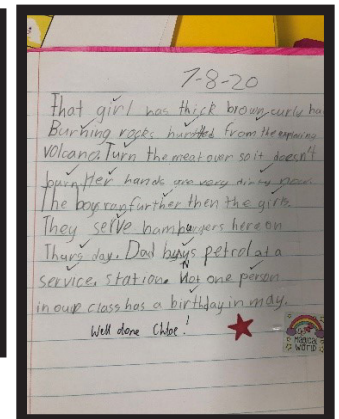 7-8-20
That girl has thick brown curly ha
Burning rocks hurtled from the exploding
volcano. Turn the meat over so it doesn't
burn. Her hands are very
The boy ran further then the girls.
They serve hamburgers here on
Thurs day. Dad buys petrol at a
service, station. Not one person
in our class has a birthday in may.
Well done Chloe!
MAGICAL
WORLD